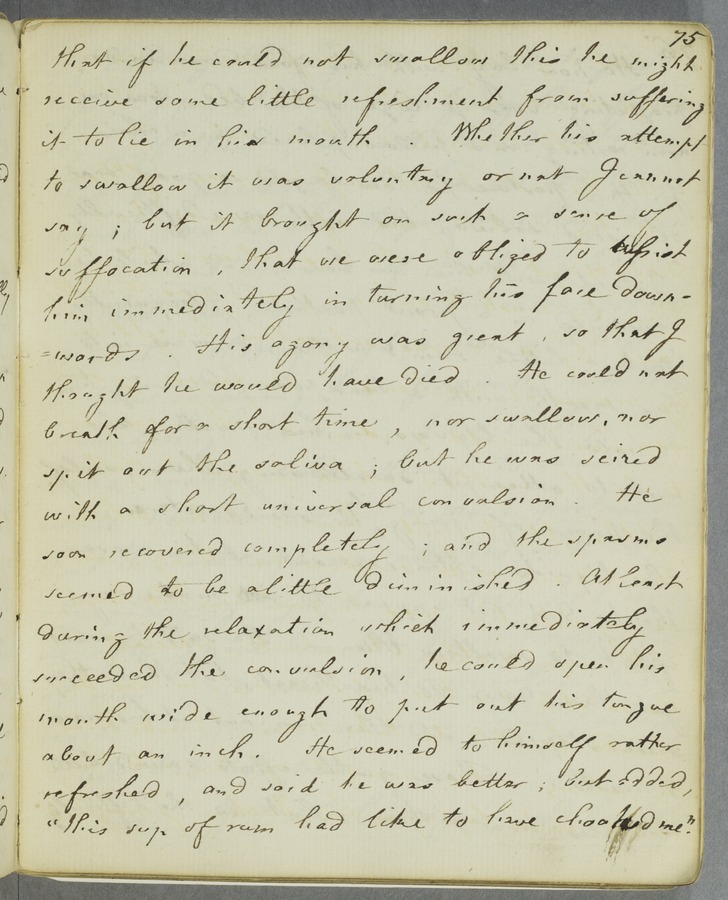 75
that if he could not swallow this he might
receive some little refreshment from suffering
it to lie in his mouth . Whether his attempt
to swallow it was voluntary or not I cannot
say ; but it brought on such a sense of
suffocation , that we were obliged to assist
him immediately in turning his face down-
=wards . His agony was great , so that I
thought he would have died . He could not
breath for a short time , nor swallow, nor
spit out the saliva ; but he was seized
with a short universal convulsion . He
soon recovered completely ; and the spasms
seemed to be a little diminished . At least
during the relaxation which immediately
succeeded the convulsion , he could open his
mouth wide enough to put out his tongue
about an inch . He seemed to himself rather
refreshed , and said he was better ; but added,
"this sup of rum had like to have choaked me".